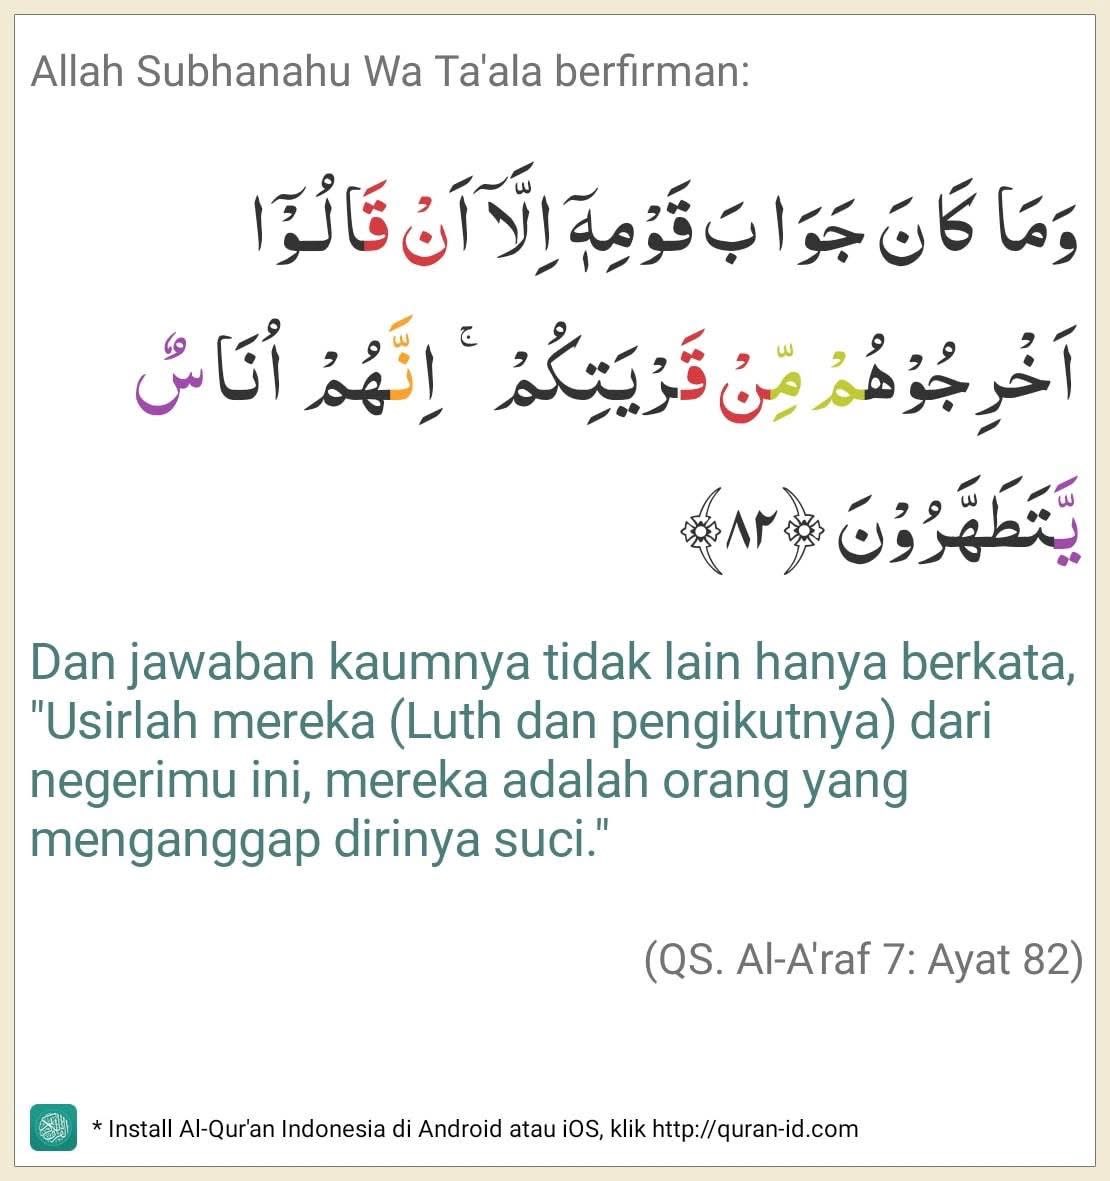 Allah Subhanahu Wa Ta'ala berfirman:
وَمَا كَانَ جَوَا بَ قَوْمِهٖۤ اِلَّاۤ اَنْ قَا لُوْۤا
اَخْرِجُوْهُمْ مِّنْ قَرْيَتِكُمْ ۚ اِنَّهُمْ اُنَا سٌ
يَّتَطَهَّرُوْنَ ﴿٨٢﴾
Dan jawaban kaumnya tidak lain hanya berkata,
"Usirlah mereka (Luth dan pengikutnya) dari
negerimu ini, mereka adalah orang yang
menganggap dirinya suci."
(QS. Al-A'raf 7: Ayat 82)
* Install Al-Qur'an Indonesia di Android atau iOS, klik http://quran-id.com